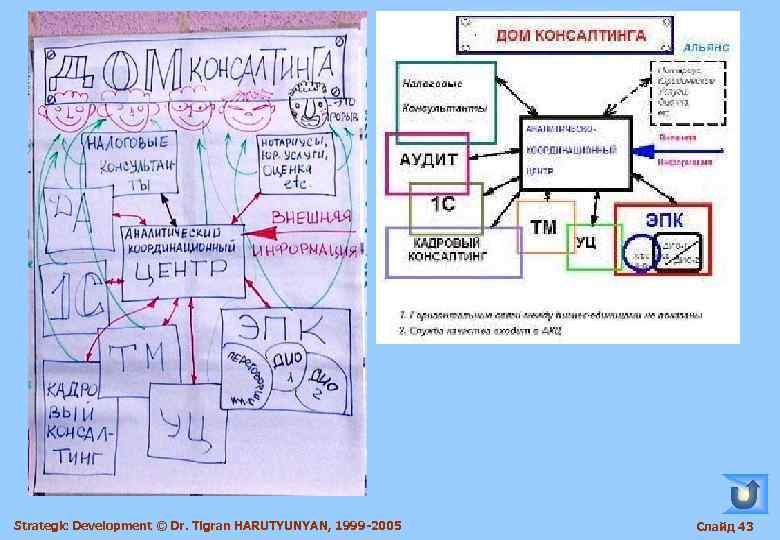 ДОМ КОНСАЛТИНГА
ЭТО
ПРОРЫВ
НАЛОГОВЫЕ
КОНСУЛЬТАН-
ТЫ
НОТАРИУСЫ,
ЮР. УСЛУГИ,
ОЦЕНКА
etc.
ВНЕШНЯЯ
ИНФОРМАЦИЯ
АНАЛИТИЧЕСКИЙ
КООРДИНАЦИОННЫЙ
ЦЕНТР
1С
ЭПК
ТМ
ДИО
1
ДИО
2
КАДРО
ВЫЙ
КОНСАЛ-
ТИНГ
УЦ
ДОМ КОНСАЛТИНГА
АЛЬЯНС
Налоговые
Консультанты
Нотариус
Юридические
Услуги
Оценка
etc
АНАЛИТИЧЕСКО-
КООРДИНАЦИОННЫЙ
ЦЕНТР
Внешняя
Информация
АУДИТ
1С
КАДРОВЫЙ
КОНСАЛТИНГ
ТМ
УЦ
ЭПК
ДИО-2
1. Горизонтальные связи между бизнес-единицами не показаны
2. Служба качества входит в АКЦ
Strategic Development © Dr. Tigran HARUTYUNYAN, 1999-2005
Слайд 43